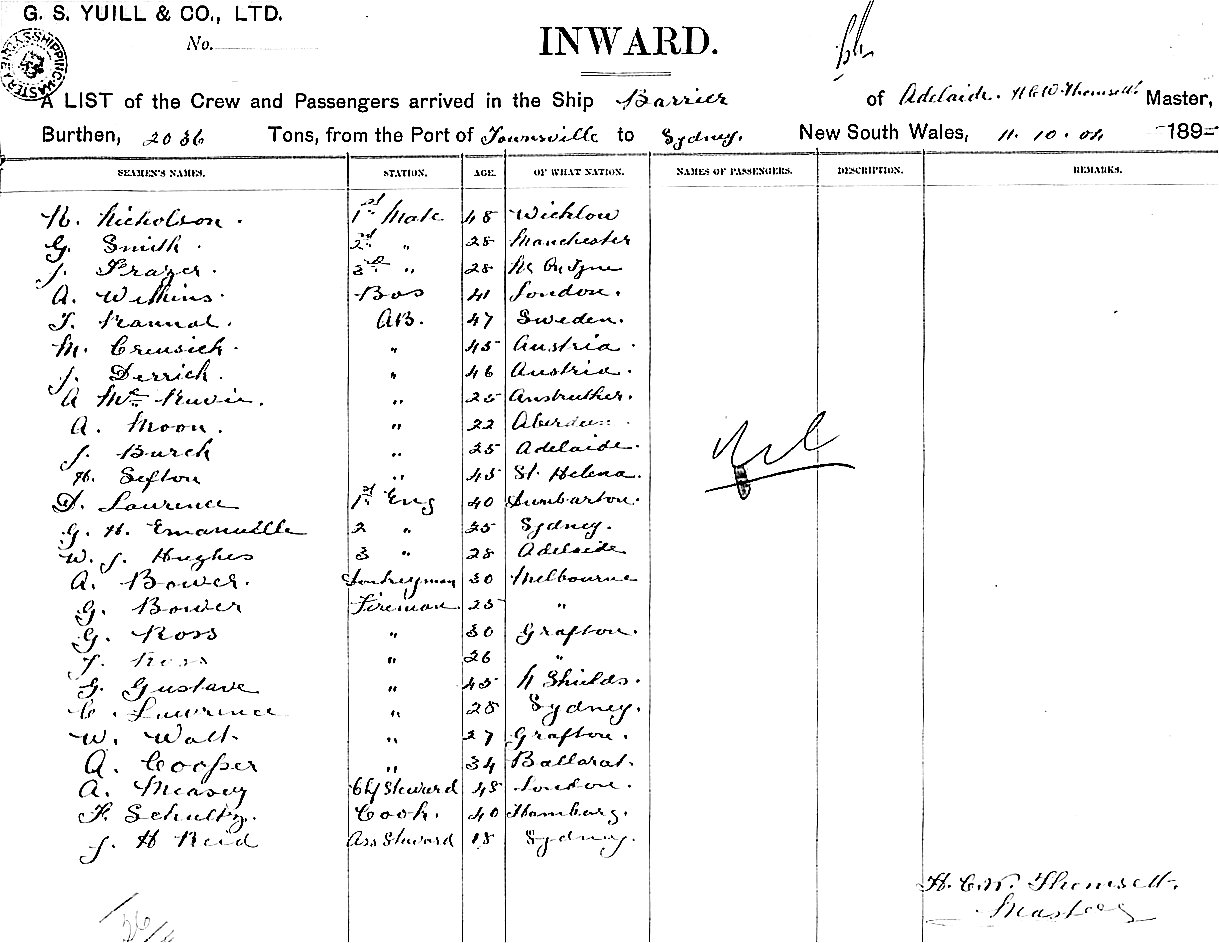 G. S. YUILL & CO., LTD.
No.
INWARD.
A LIST of the Crew and Passengers arrived in the Ship Barrier of Adelaide. H C W Thomsett Master,
Burthen, 2036 Tons, from the Port of Townsville to Sydney. New South Wales, 11. 10. 04 189
SEAMEN'S NAMES. STATION. AGE. OF WHAT NATION. NAMES OF PASSENGERS. DESCRIPTION. REMARKS.
N. Nicholson. 1st Mate 48 Wicklow
G. Smith. 2nd " 28 Manchester
J. Frazer. 3rd " 28 N. On Tyne
A. Wilkins. Bos 41 London.
T. AB. 47 Sweden.
M. " 45 Austria.
J. Derrick. " 46 Austria.
A Mc " 25 Anstruther.
A. Moon. " 22 Aberdeen
J. Burch " 25 Adelaide.
H. Sefton " 45 St. Helena.
D. Lawrence 1st Eng 40 Dumbarton.
G. H. Emanuille 2 " 25 Sydney.
W. J. Hughes 3 " 28 Adelaide
A. Bower. Donkeyman 30 Melbourne
G. Bower Fireman 25 "
G. Ross " 30 Grafton.
J. Ross " 26 "
G. Gustave " 45 N Shields.
C. Lawrence " 28 Sydney.
W. Walt. " 27 Grafton.
A. Cooper " 34 Ballarat.
A. Measey Chf Steward 48 London.
F. Schultz. Cook. 40 Hamburg.
J. H Reid Ass Steward 18 Sydney.
Nil
H. C. W. Thomsett.
Master